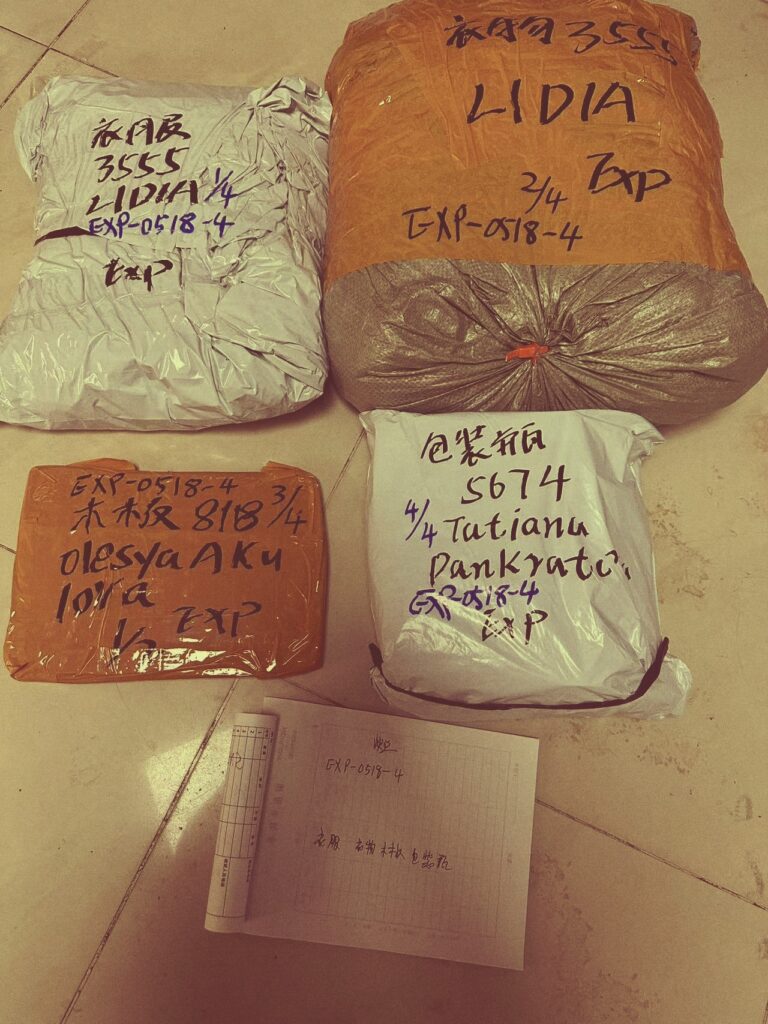 衣服
3555
LIDIA 1/4
EXP-0518-4
EXP
衣物 3555
LIDIA
2/4 EXP
EXP-0518-4
EXP-0518-4
木板 8118 3/4
olesya AKu
lova
1/2 EXP
包装瓶
5674
4/4 Tatiana
Pankrato
EXP-0518-4
EXP
EXP-0518-4
衣服 衣物 木板 包装瓶